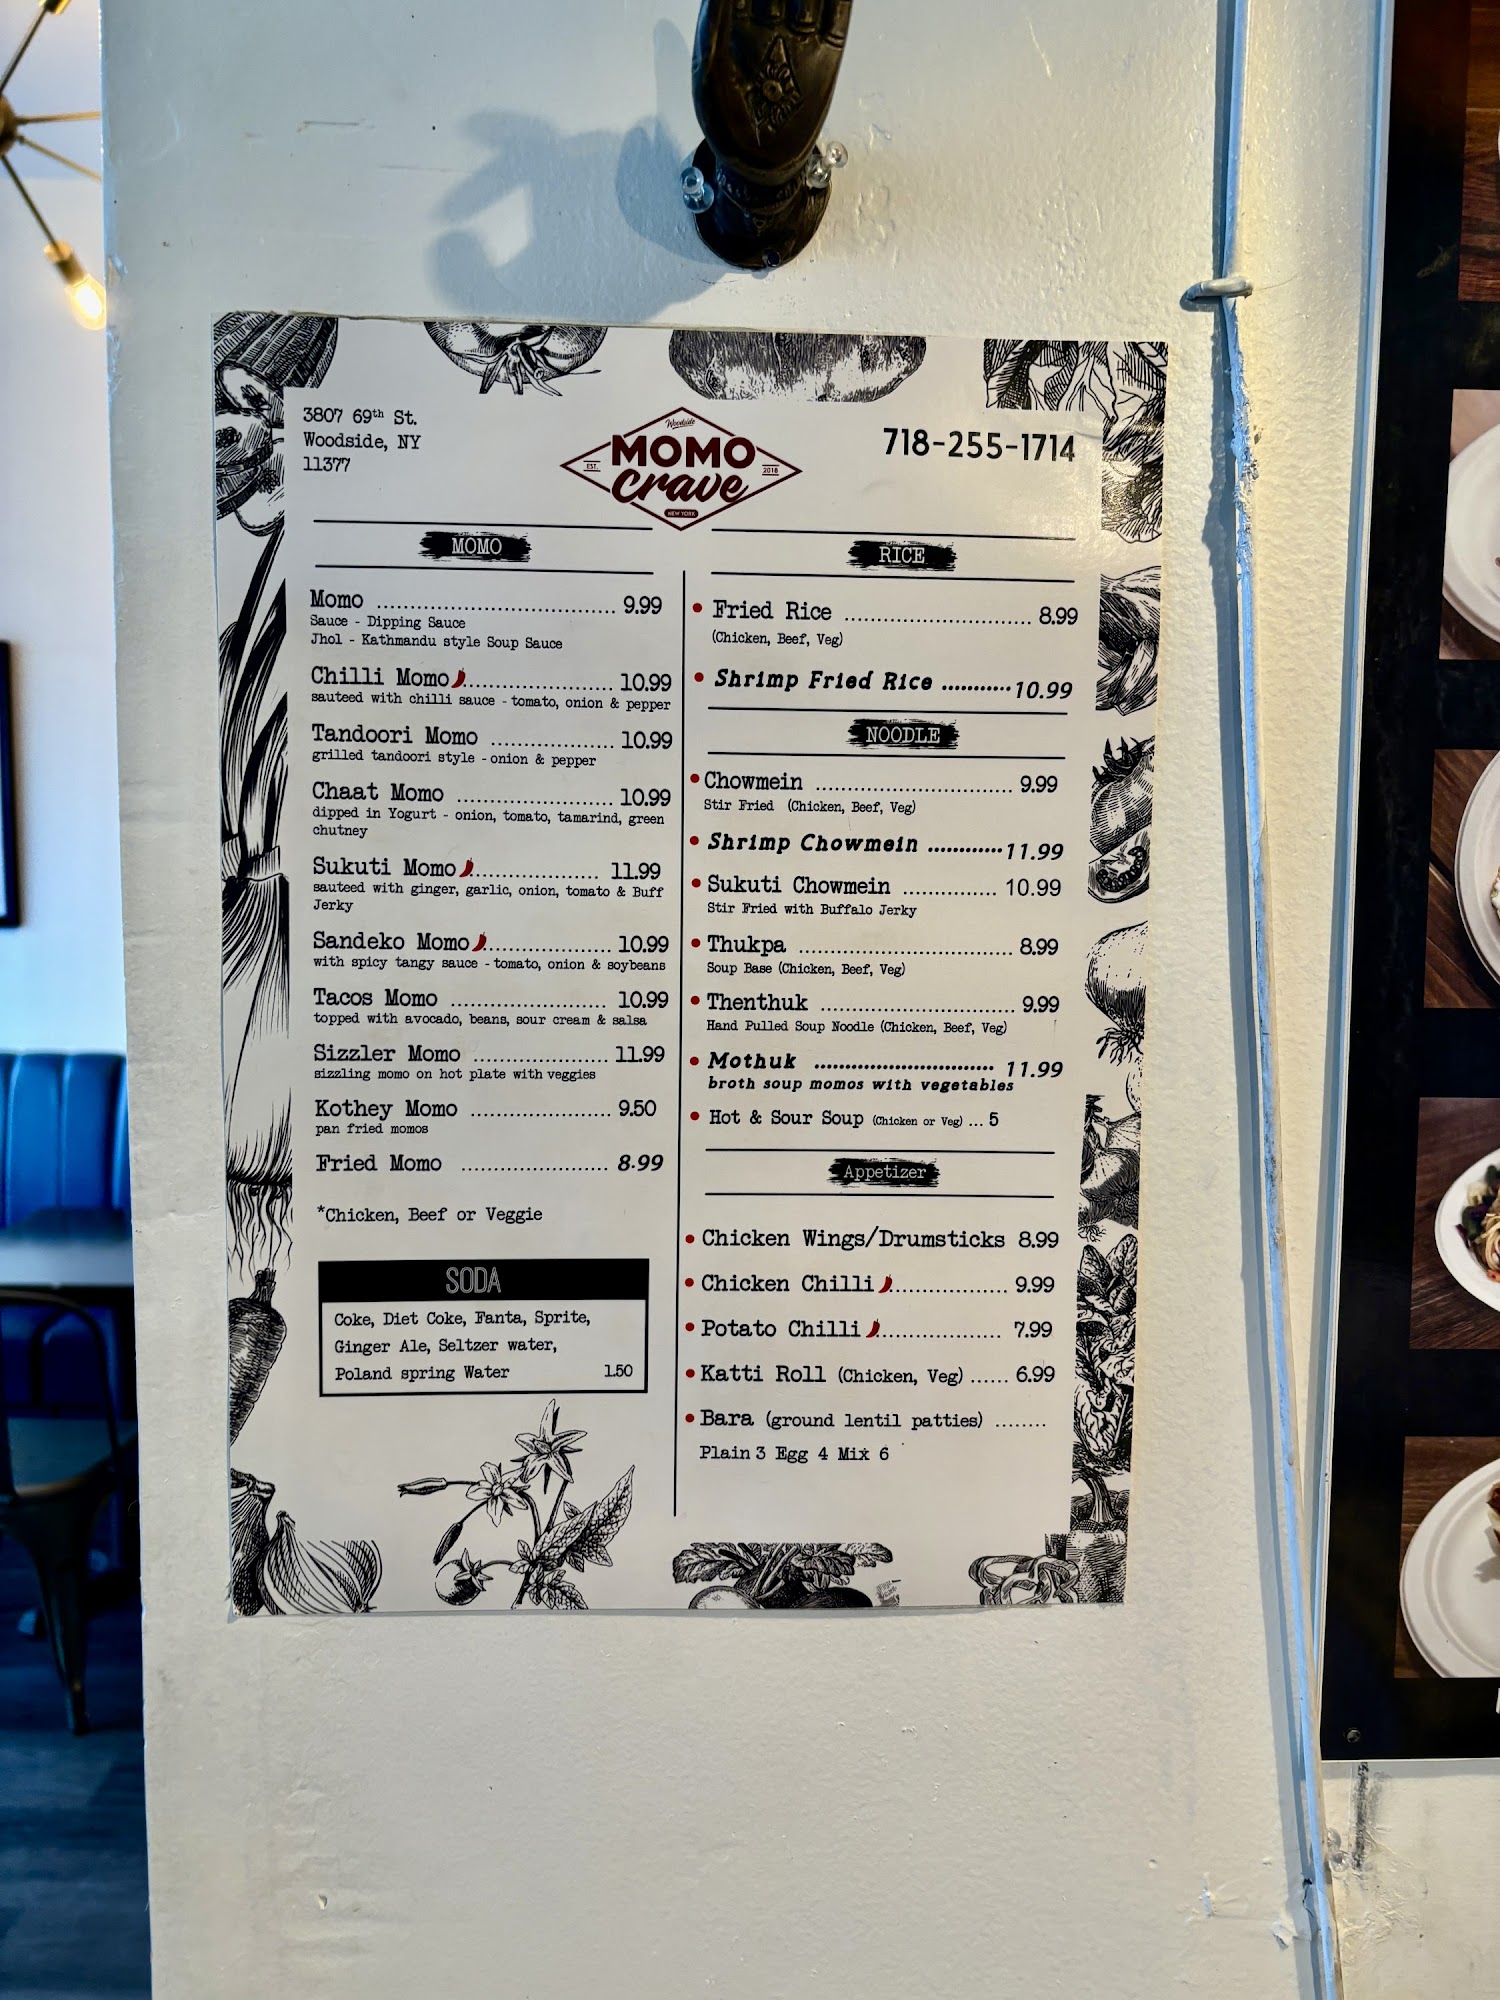 3807 69th St.
Woodside, NY
11377
Woodside
EST.
MOMO
2018
Crave
NEW YORK
718-255-1714
MOMO
Momo ................................ 9.99
Sauce - Dipping Sauce
Jhol - Kathmandu style Soup Sauce
Chilli Momo .................... 10.99
sauteed with chilli sauce - tomato, onion & pepper
Tandoori Momo ................ 10.99
grilled tandoori style - onion & pepper
Chaat Momo ..................... 10.99
dipped in Yogurt - onion, tomato, tamarind, green
chutney
Sukuti Momo ................. 11.99
sauteed with ginger, garlic, onion, tomato & Buff
Jerky
Sandeko Momo ................. 10.99
with spicy tangy sauce - tomato, onion & soybeans
Tacos Momo ..................... 10.99
topped with avocado, beans, sour cream & salsa
Sizzler Momo .................. 11.99
sizzling momo on hot plate with veggies
Kothey Momo ................... 9.50
pan fried momos
Fried Momo .................... 8.99
*Chicken, Beef or Veggie
SODA
Coke, Diet Coke, Fanta, Sprite,
Ginger Ale, Seltzer water,
Poland spring Water 1.50
RICE
• Fried Rice ......................... 8.99
(Chicken, Beef, Veg)
• Shrimp Fried Rice ........... 10.99
NOODLE
• Chowmein ........................... 9.99
Stir Fried (Chicken, Beef, Veg)
• Shrimp Chowmein ............ 11.99
• Sukuti Chowmein ............. 10.99
Stir Fried with Buffalo Jerky
• Thukpa ............................. 8.99
Soup Base (Chicken, Beef, Veg)
• Thenthuk .......................... 9.99
Hand Pulled Soup Noodle (Chicken, Beef, Veg)
• Mothuk .............................. 11.99
broth soup momos with vegetables
• Hot & Sour Soup (Chicken or Veg) ... 5
Appetizer
• Chicken Wings/Drumsticks 8.99
• Chicken Chilli ................ 9.99
• Potato Chilli ................. 7.99
• Katti Roll (Chicken, Veg) ...... 6.99
• Bara (ground lentil patties) ........
Plain 3 Egg 4 Mix 6